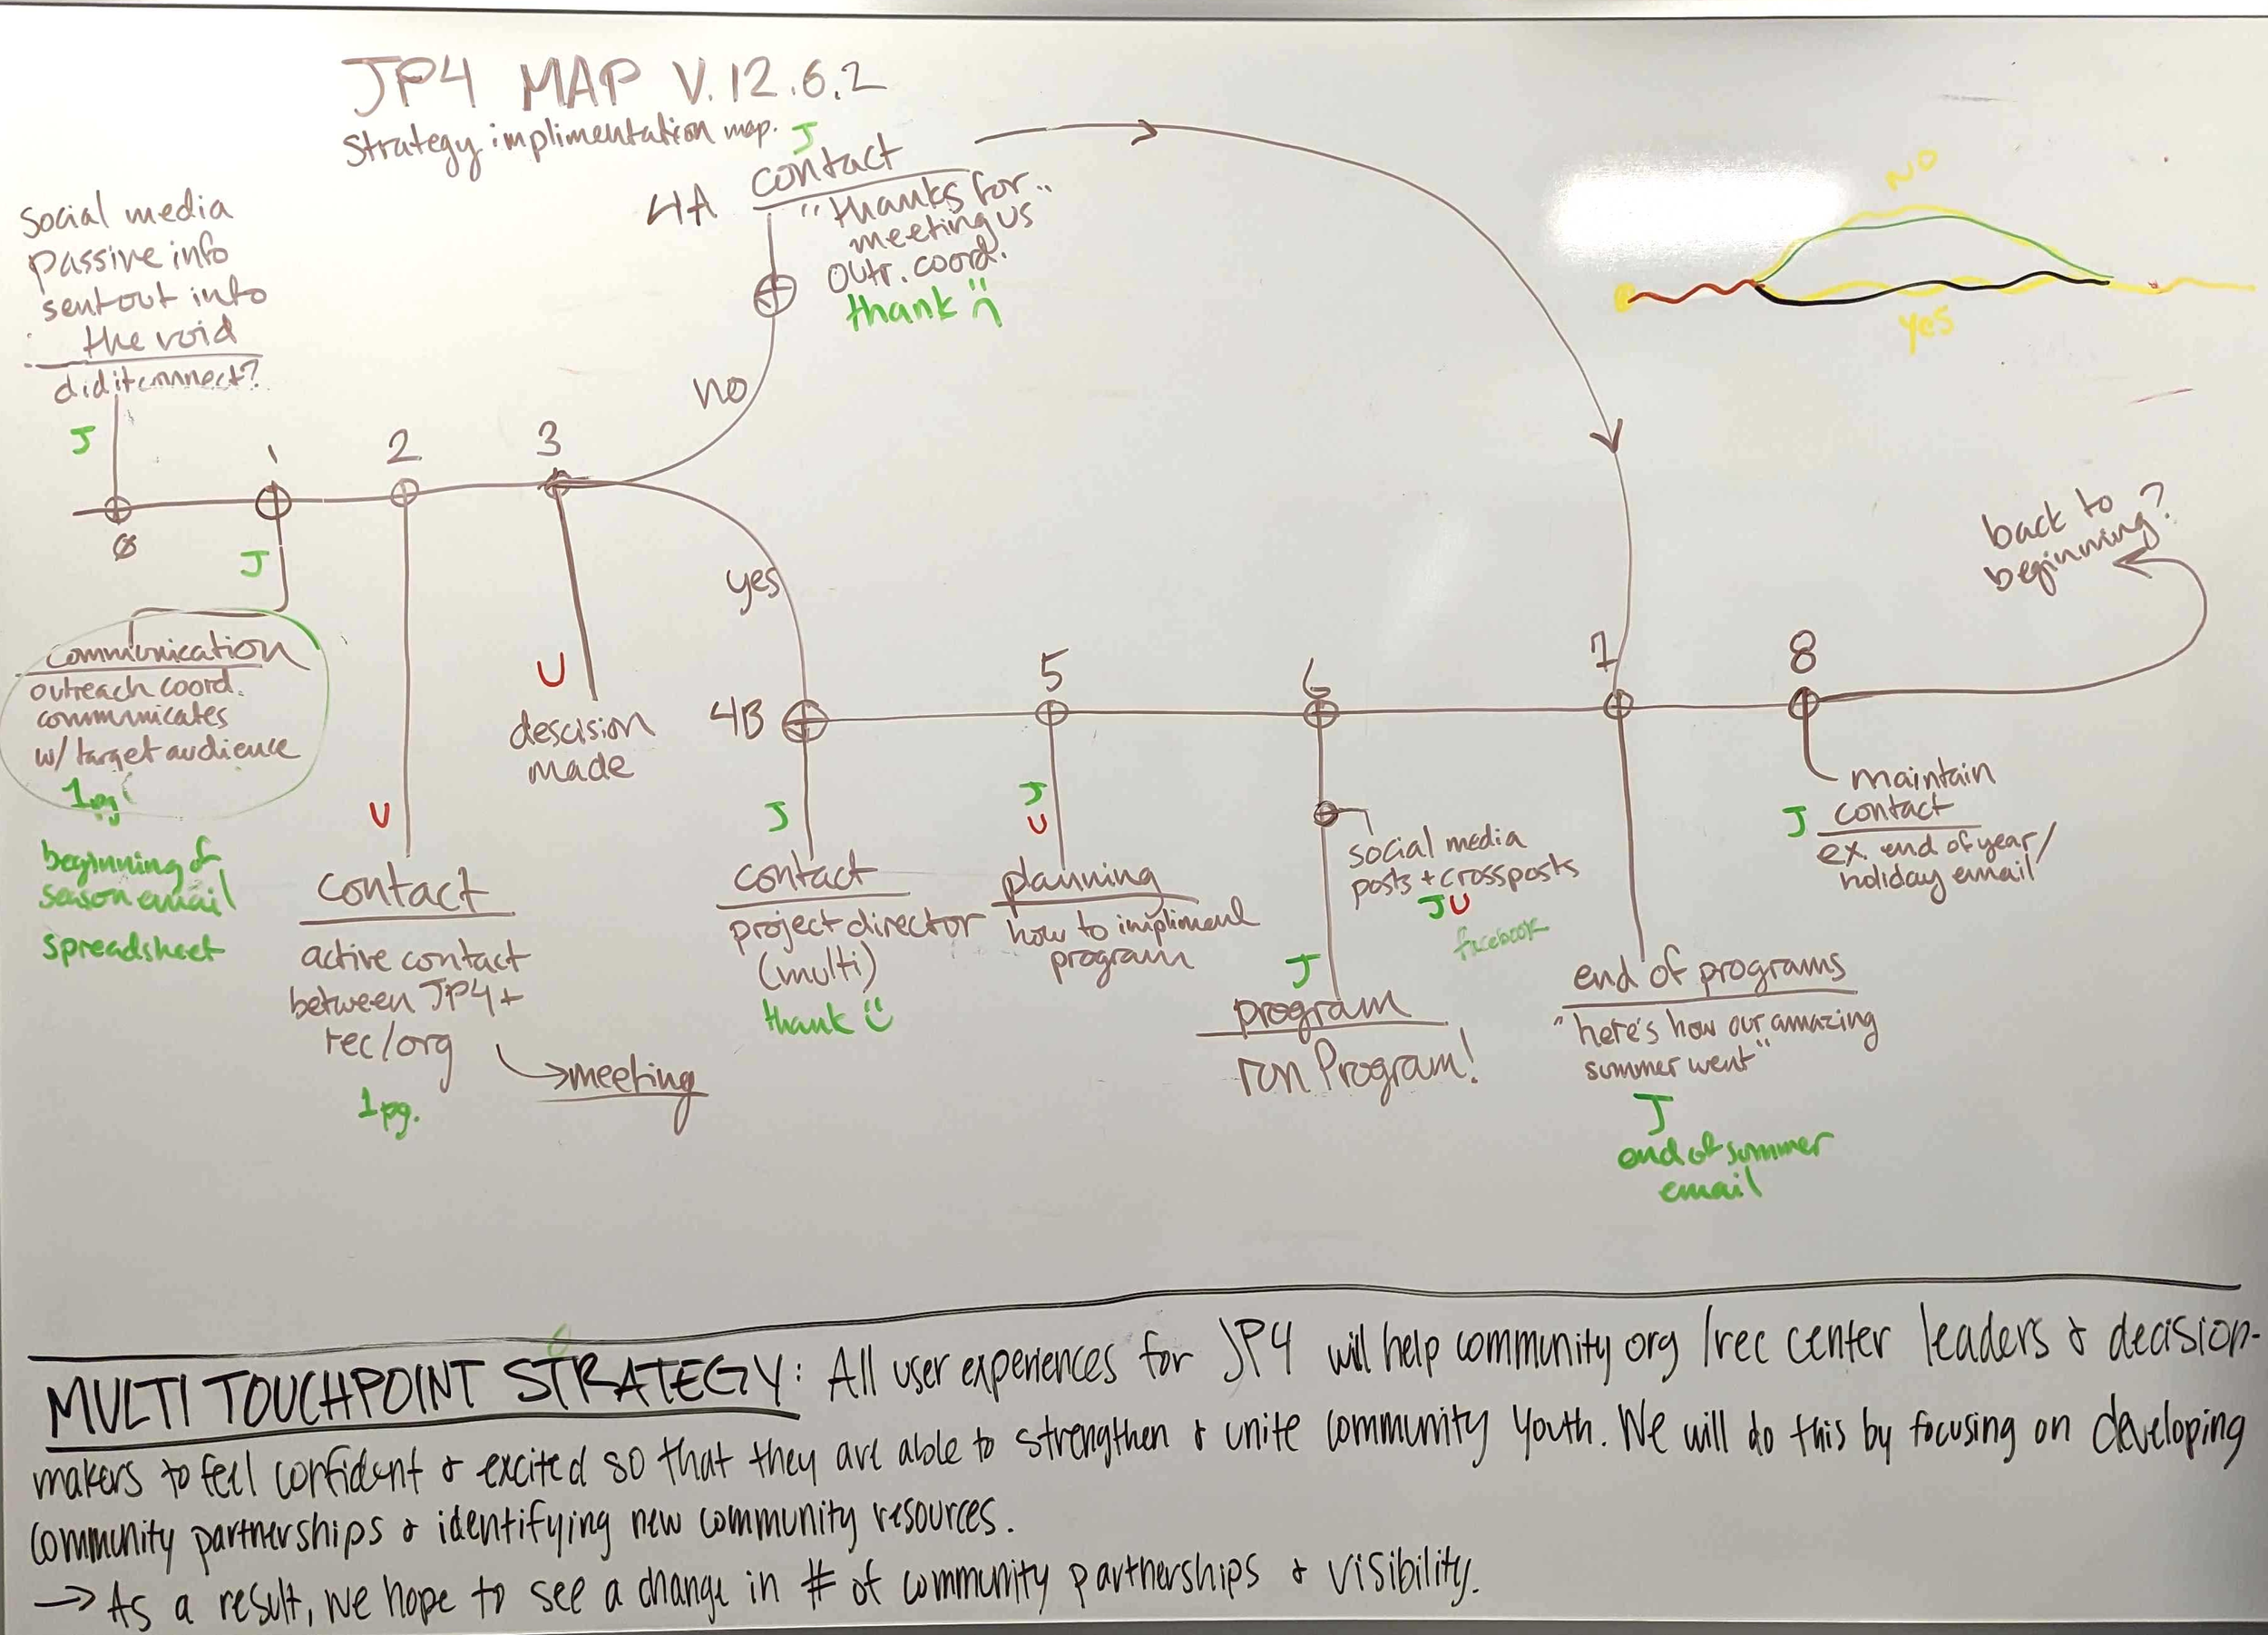 JP4 MAP V.12.6.2
Strategy implimentation map.
social media
passive info
sent out into
the void
did it connect?
J
0
1
J
communication
outreach coord.
communicates
w/ target audience
1pg
beginning of
season email
spreadsheet
2
U
contact
active contact
between JP4 +
rec/org
→ meeting
1pg.
3
U
descision
made
no
4A
J
contact
"thanks for..
meeting us
outr. coord.
thank
yes
4B
J
contact
project director
(multi)
thank
5
J
U
planning
how to impliment
program
6
social media
posts + crossposts
J U
facebook
J
program
run Program!
7
end of programs
"here's how our amazing
summer went"
J
end of summer
email
8
maintain
J contact
ex. end of year/
holiday email
back to
beginning?
NO
yes
MULTI TOUCHPOINT STRATEGY: All user experiences for JP4 will help community org /rec center leaders & decision-
makers to feel confident & excited so that they are able to strengthen & unite community youth. We will do this by focusing on developing
community partnerships & identifying new community resources.
→ As a result, we hope to see a change in # of community partnerships & visibility.